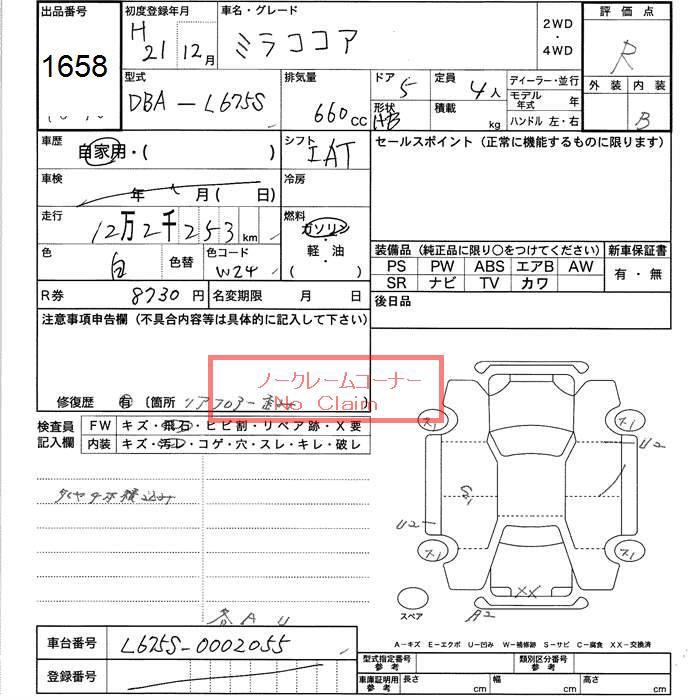 出品番号 初度登録年月 車名・グレード 評価点
1658 H 21 12月 ミラココア 2WD ・ 4WD R
型式 排気量 ドア 5 定員 4人 ディーラー・並行 外装 内装
DBA-L675S 660cc 形状 HB 積載 kg モデル年式 年
ハンドル 左・右 B
車歴 シフト セールスポイント（正常に機能するものに限ります）
自家用・( ) IAT
車検 冷房
年 月( 日)
走行 燃料
12万2千253km ガソリン
色 色替 色コード 軽・油 装備品（純正品に限り○をつけてください） 新車保証書
白 W24 ( ) PS PW ABS エアB AW 有・無
SR ナビ TV カワ
R券 8730円 名変期限 月 日 後日品
注意事項申告欄（不具合内容等は具体的に記入して下さい）
ノークレームコーナー
No Claim
修復歴 有 〔箇所 リアフロアー
検査員記入欄 FW キズ・飛石・ヒビ割・リペア跡・X要
内装 キズ・汚レ・コゲ・穴・スレ・キレ・破レ
ス1 ス1
U2
タイヤ4本積込み
U2
ス1 ス1
XX
スペア A2
各AU
A-キズ E-エクボ U-凹み W-補修跡 S-サビ C-腐食 XX-交換済
車台番号 L675S-0002055
型式指定番号 参考 類別区分番号 参考
登録番号 車庫証明用 参考 長さ cm 幅 cm 高さ cm